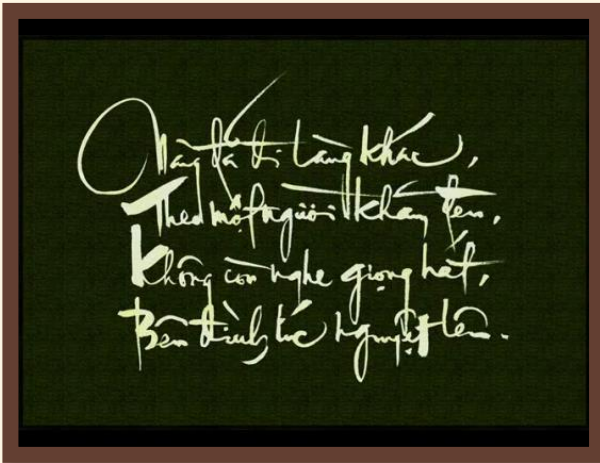 Nàng đã đi làng khác,
Theo một người khác tên,
Không còn nghe giọng hát,
Bên đình lúc nguyệt lên.